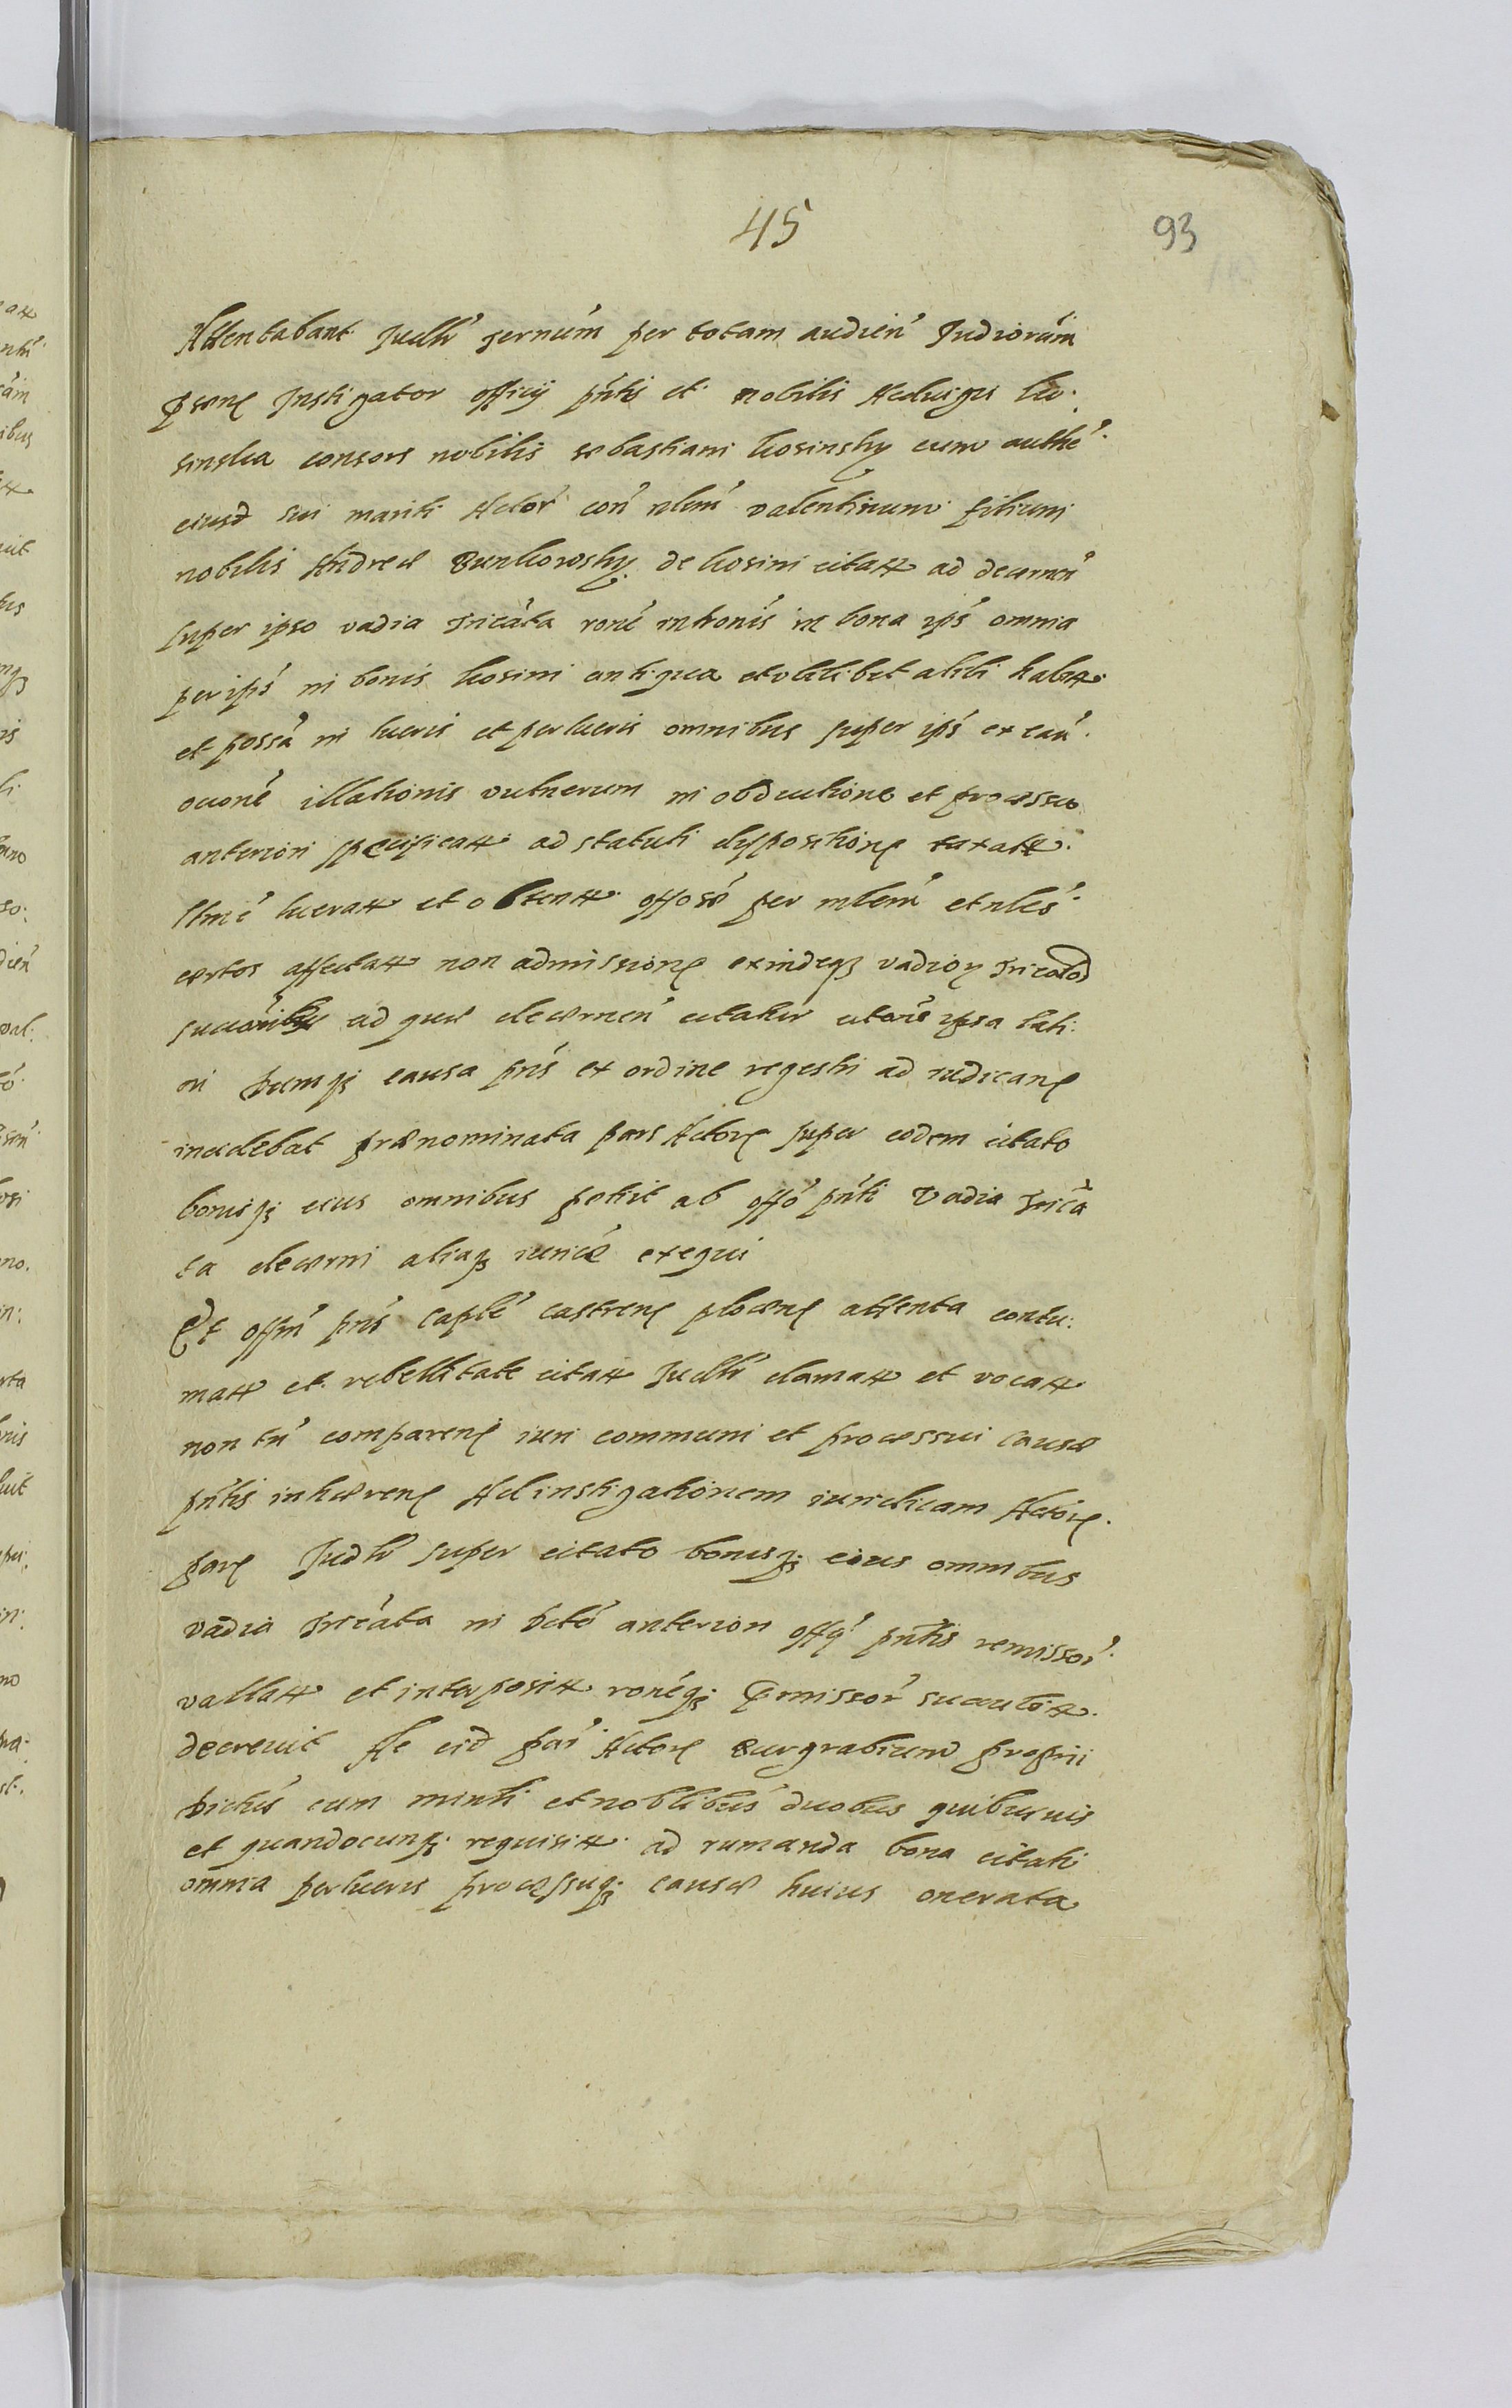 45
93
Attentabant Judlr ternum per totam audien Judiorum
psens Instigator officij pntis et nobilis Heduigis Ko:
sinska consors nobilis Sebastiani Kosinsky cum authe
eiusd sui mariti Actor con nlem valentinum filium
nobilis Andreæ Bunkowsky de Kosini citatt ad decernen
super ipso vadia tricata rone intronis in bona ips omnia
per ips in bonis Kosini antiqua et ubilibet alibi habitt
et possa in lucris et perlucris omnibus super ips ex cau
ouone illationis vulnerum in obductione et processu
anteriori specificatt ad statuti dispositione taxatt
lime lucratt et obtentt offose per mlem et nles
certos affectatt non admissione exindeqz vadior tricator
ad quæ decernen citatur citatione ipsa lati:
ni Dumqz causa pns ex ordine regestri ad iudicand
incidebat prænominata pars Actorea super eodem citato
bonisqz eius omnibus petiit ab offo pnti vadia trica
ta decerni aliaqz iurice exequi
Et offm pns Caple castrens plocens attenta contu:
matt et rebellitate citatt Judlr clamatt et vocatt
non tn comparens iuri communi et processui causæ
pntis inhærens Ad instigationem iuridicam Actore
parts Judlr super citato bonisqz eius omnibus
vadia tricata in Dcto anteriori offij pntis remissor
vallatt et interpositt roneqz pmissor succubitt
decreuit Ac eid parti Actore Burgrabium proprii
Dictis cum minli et noblibus duobus quibusuis
et quandocunqz requisitt ad rumanda bona citati
omnia perlucris processuqz causæ huius onerata